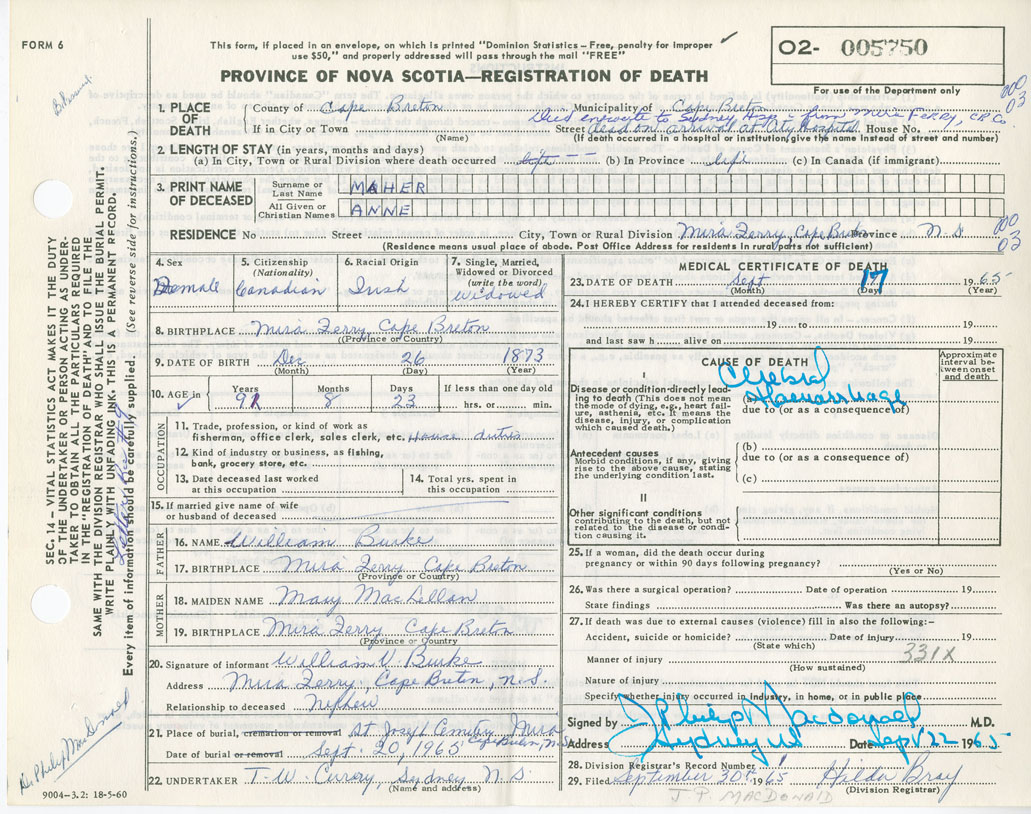 FORM 6
This form, if placed in an envelope, on which is printed "Dominion Statistics – Free, penalty for improper
use $50," and properly addressed will pass through the mail "FREE"
O2- 005750
PROVINCE OF NOVA SCOTIA—REGISTRATION OF DEATH
For use of the Department only
00
03
1. PLACE OF DEATH
County of Cape Breton Municipality of Cape Breton
Died enroute to Sydney Hosp – from Mira Ferry, C.B. Co.
If in City or Town (Name) Street dead on arrival at City Hospital House No.
(If death occurred in a hospital or institution, give the name instead of street and number)
2. LENGTH OF STAY (in years, months and days)
(a) In City, Town or Rural Division where death occurred life (b) In Province life (c) In Canada (if immigrant)
3. PRINT NAME OF DECEASED
Surname or Last Name MAHER
All Given or Christian Names ANNE
00
03
RESIDENCE No. Street City, Town or Rural Division Mira Ferry, Cape Breton Province N.S.
(Residence means usual place of abode. Post Office Address for residents in rural parts not sufficient)
4. Sex Female
5. Citizenship (Nationality) Canadian
6. Racial Origin Irish
7. Single, Married, Widowed or Divorced (write the word) widowed
8. BIRTHPLACE Mira Ferry Cape Breton
(Province or Country)
9. DATE OF BIRTH Dec 26 1873
(Month) (Day) (Year)
10. AGE in Years 91 Months 8 Days 23 If less than one day old hrs. or min.
OCCUPATION
11. Trade, profession, or kind of work as
fisherman, office clerk, sales clerk, etc. House duties
12. Kind of industry or business, as fishing,
bank, grocery store, etc.
13. Date deceased last worked
at this occupation
14. Total yrs. spent in
this occupation
15. If married give name of wife
or husband of deceased
FATHER
16. NAME William Burke
17. BIRTHPLACE Mira Ferry Cape Breton
(Province or Country)
MOTHER
18. MAIDEN NAME Mary MacLellan
19. BIRTHPLACE Mira Ferry Cape Breton
(Province or Country)
20. Signature of informant William V. Burke
Address Mira Ferry, Cape Breton, N.S.
Relationship to deceased Nephew
21. Place of burial, cremation or removal St Joseph Cemetery Mira
Cape Breton, N.S.
Date of burial or removal Sept. 20, 1965
22. UNDERTAKER T.W. Curry, Sydney N.S.
(Name and address)
MEDICAL CERTIFICATE OF DEATH
23. DATE OF DEATH Sept 17 1965
(Month) (Day) (Year)
24. I HEREBY CERTIFY that I attended deceased from:
19 to 19
and last saw h alive on 19
CAUSE OF DEATH
Approximate interval between onset and death
I
Disease or condition directly leading to death (This does not mean the mode of dying, e.g., heart failure, asthenia, etc. It means the disease, injury, or complication which caused death.)
(a) Cerebral Haemorrhage
due to (or as a consequence of)
Antecedent causes
Morbid conditions, if any, giving rise to the above cause, stating the underlying condition last.
(b)
due to (or as a consequence of)
(c)
II
Other significant conditions
contributing to the death, but not related to the disease or condition causing it.
25. If a woman, did the death occur during
pregnancy or within 90 days following pregnancy?
(Yes or No)
26. Was there a surgical operation? Date of operation 19
State findings Was there an autopsy?
27. If death was due to external causes (violence) fill in also the following:–
Accident, suicide or homicide? Date of injury 19
(State which)
331X
Manner of injury
(How sustained)
Nature of injury
Specify whether injury occurred in industry, in home, or in public place
Signed by J Philip Macdonald M.D.
Address Sydney NS Date Sept 22 1965
28. Division Registrar's Record Number
29. Filed September 30th 1965 Hilda Bray
(Division Registrar)
J. P. MACDONALD
SEC. 14 – VITAL STATISTICS ACT MAKES IT THE DUTY
OF THE UNDERTAKER OR PERSON ACTING AS UNDER-
TAKER TO OBTAIN ALL THE PARTICULARS REQUIRED
IN THE "REGISTRATION OF DEATH" AND TO FILE THE
SAME WITH THE DIVISION REGISTRAR WHO SHALL ISSUE THE BURIAL PERMIT.
WRITE PLAINLY WITH UNFADING INK. THIS IS A PERMANENT RECORD.
Every item of information should be carefully supplied. (See reverse side for instructions.)
Dr. Philip MacDonald
9004–3.2: 18-5-60